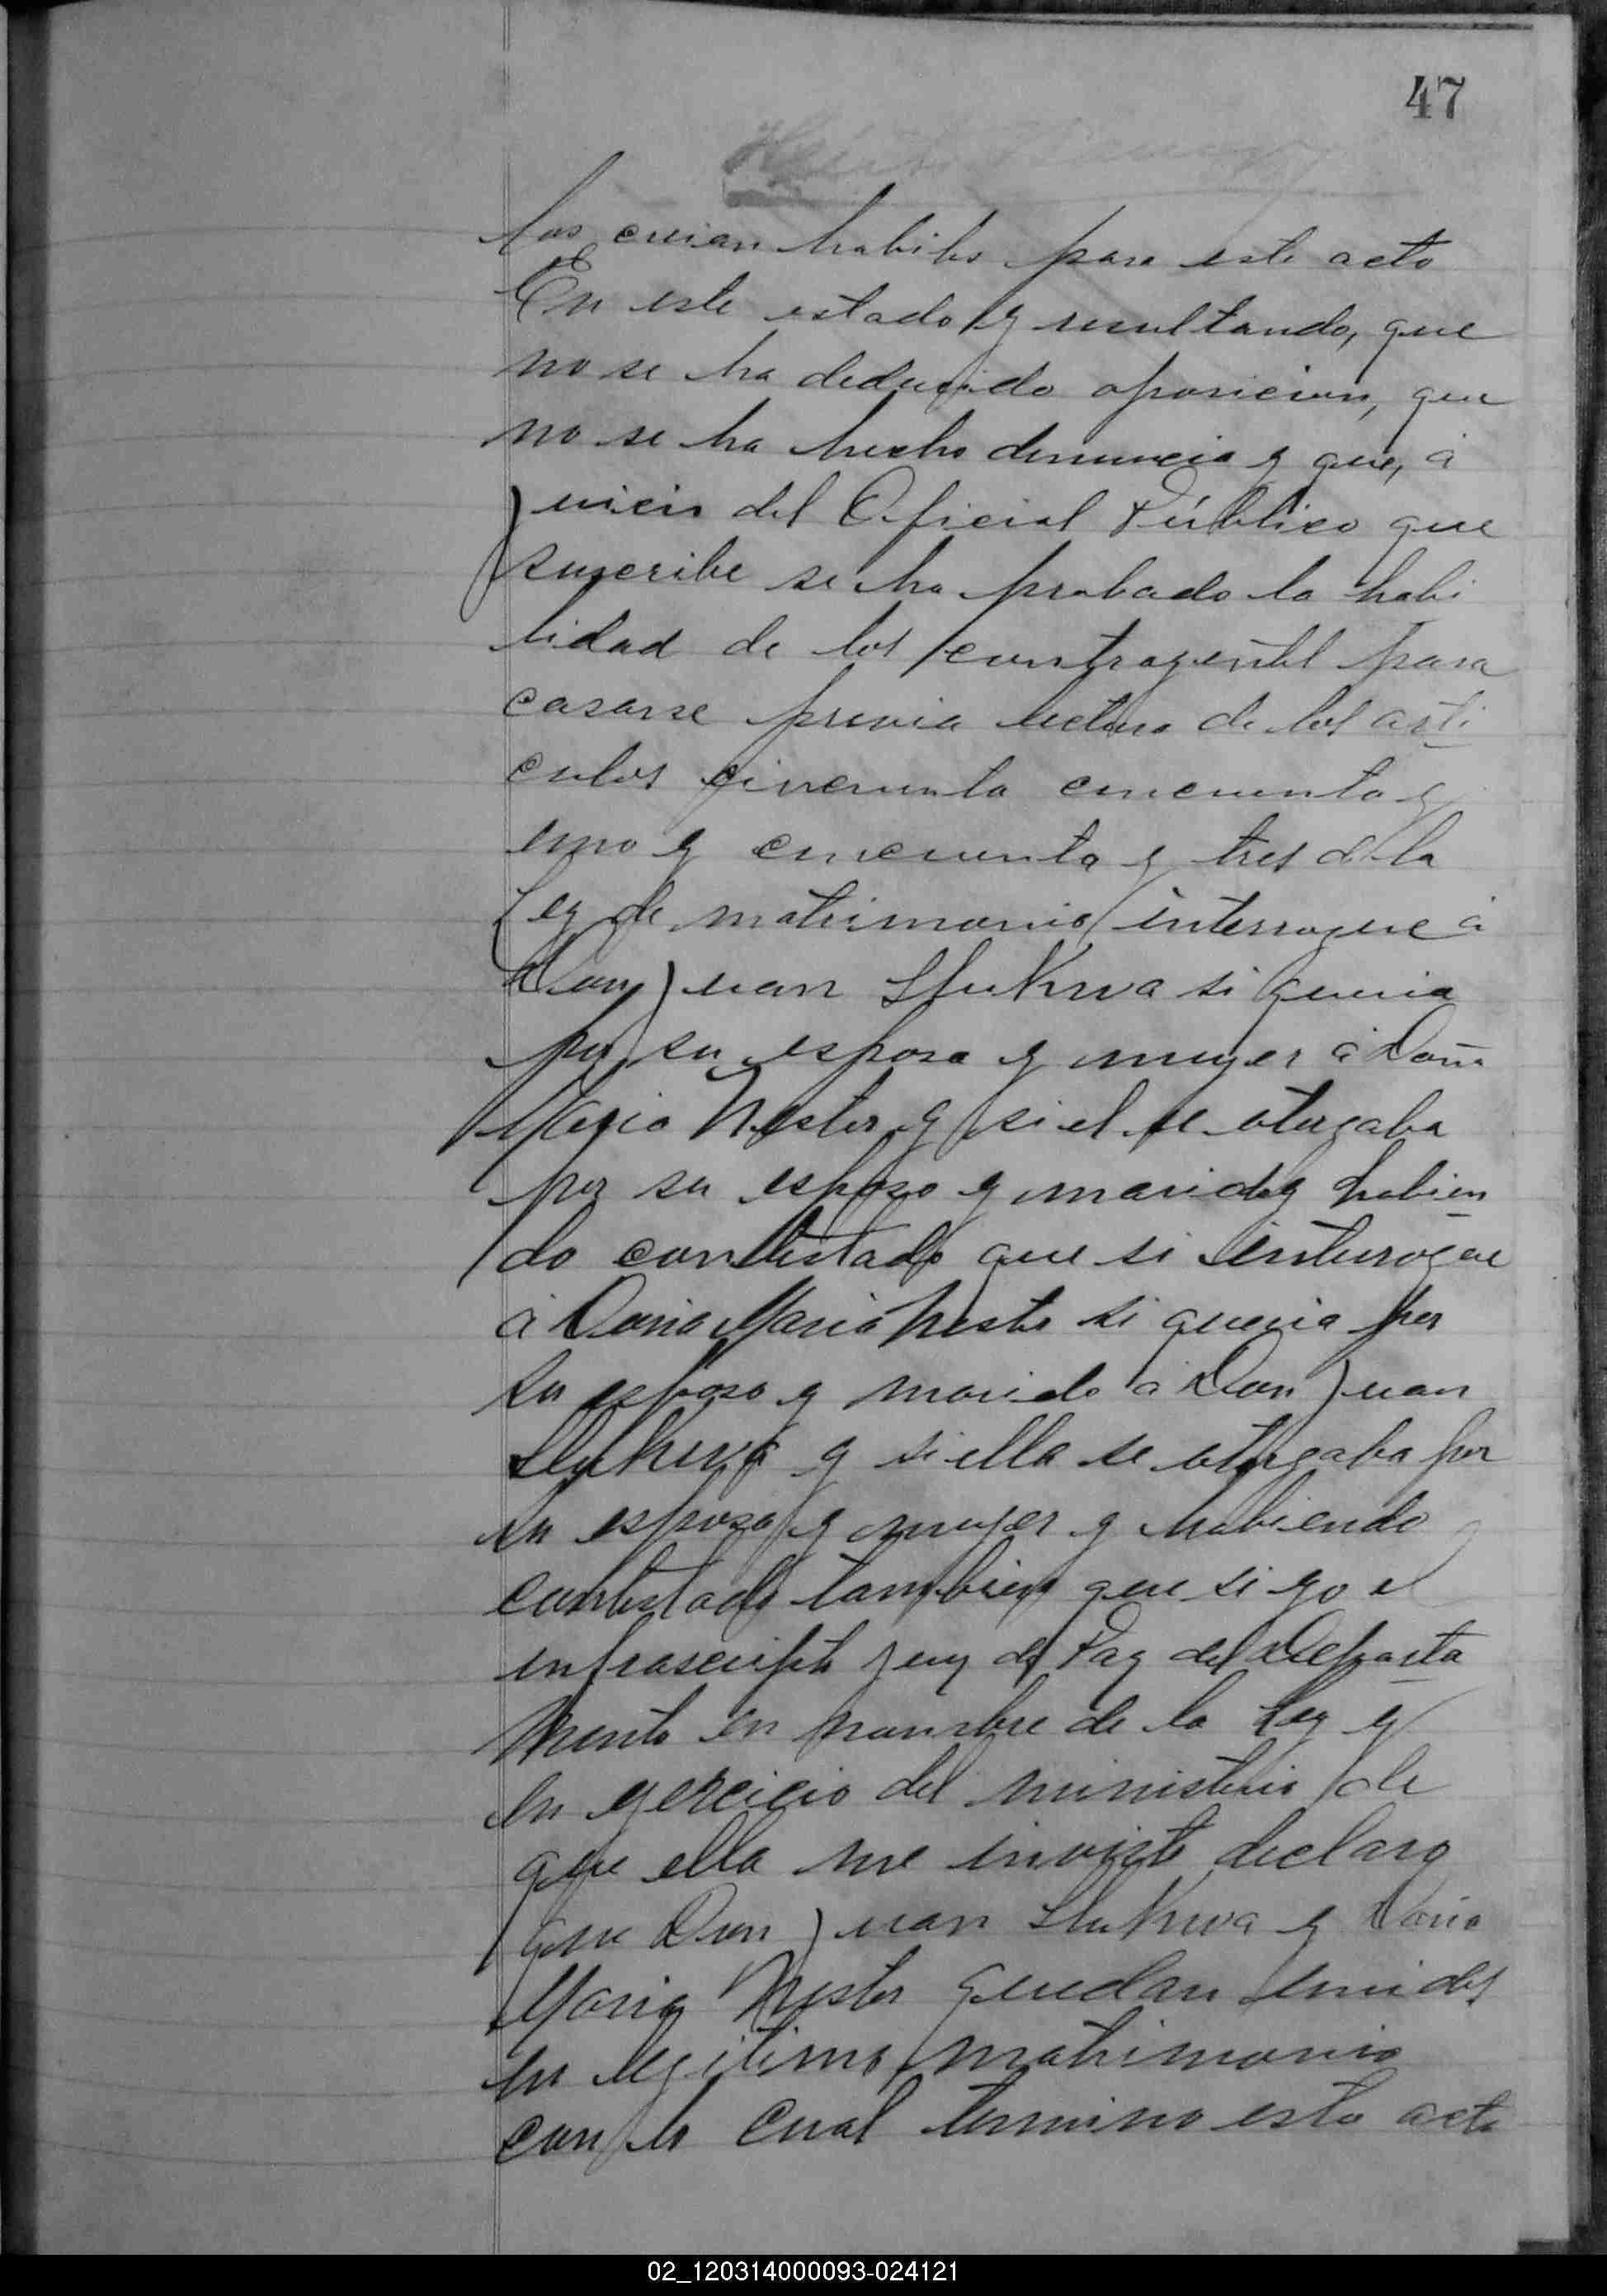 47
los creian habiles para este acto
En este estado y resultando, que
no se ha deducido oposicion, que
no se ha hecho denuncia y que, á
juicio del Oficial Público que
suscribe se ha probado la habi
lidad de los contrayentes para
casarse previa lectura de los arti
culos cincuenta cincuenta y
uno y cincuenta y tres de la
Ley de matrimonio interrogue á
Don Juan Slukwa si queria
por su esposa y mujer á Doña
Maria Nester y si el se otorgaba
por su esposo y marido y habien
do contestado que si interrogue
á Doña Maria Nester si queria por
su esposo y marido á Don Juan
Slukwa y si ella se otorgaba por
su esposa y mujer y habiendo
contestado tambien que si yo el
infrascripto Juez de Paz del Departa
mento en nombre de la Ley y
en ejercicio del ministerio de
que ella me inviste declaro
que Don Juan Slukwa y Doña
Maria Nester quedan unidos
en legitimo matrimonio
con lo cual termino este acto
02_120314000093-024121